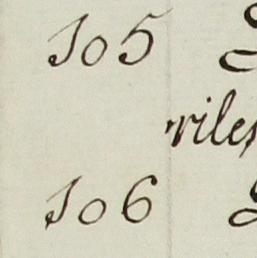 105
riles
106